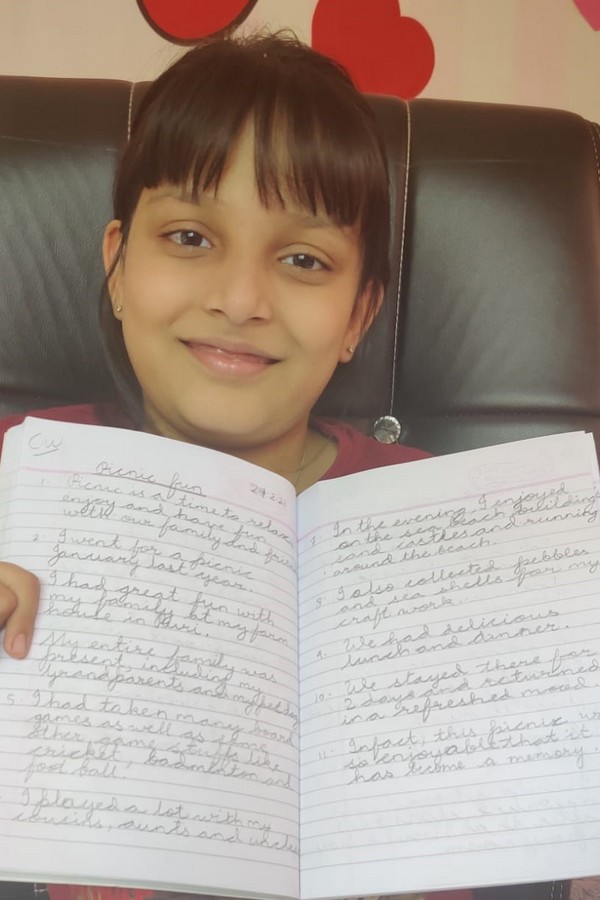 CW
Picnic fun
24.2.2
1. Picnic is a time to relax
enjoy and have fun
with our family and frie
2. I went for a picnic
January last year.
I had great fun with
my family at my farm
house in
My entire family was
present, including my
grandparents and my
5. I had taken many board
games as well as some
other game stuffs like
cricket, badminton and
foot ball.
I played a lot with my
cousins, aunts and uncles
7. In the evening, I enjoyed
on the sea beach, building
sand castles and running
around the beach.
8. I also collected pebbles
and sea shells for my
craft work.
9. We had delicious
lunch and dinner.
10. We stayed there for
2 days and returned
in a refreshed mood
11. Infact, this picnic w
so enjoyable that it
has become a memory.